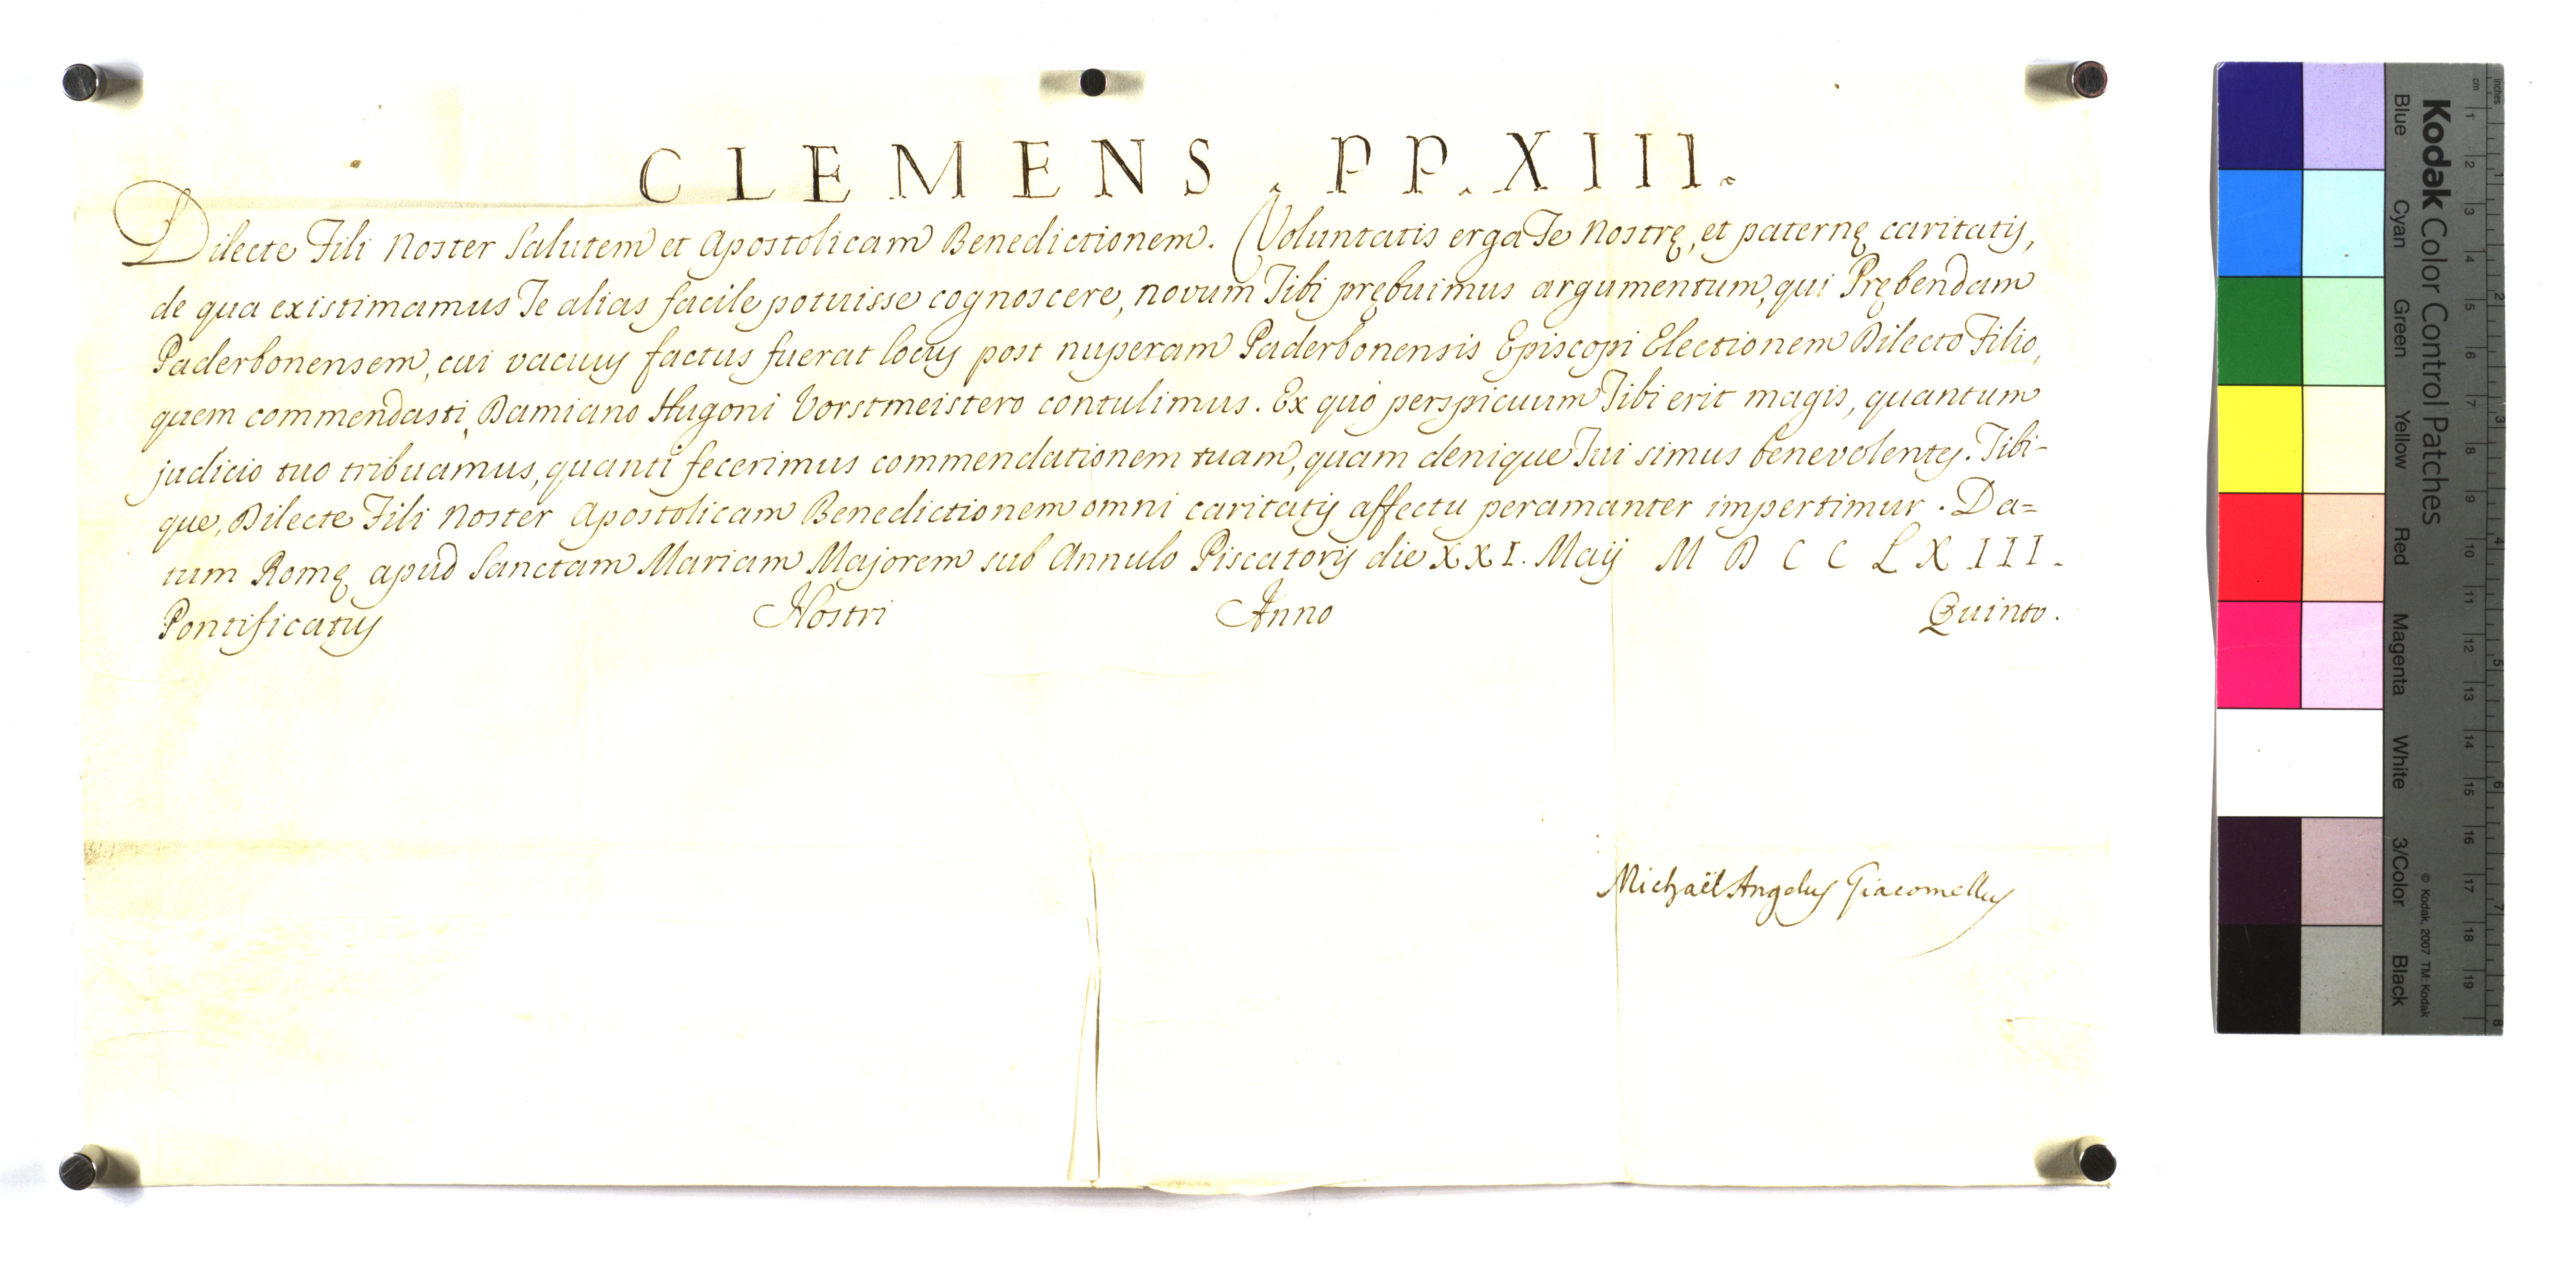 CLEMENS . PP. XIII.
Dilecte Fili Noster Salutem et Apostolicam Benedictionem. Voluntatis erga Te Nostrę, et paternę caritatis,
de qua existimamus Te alias facile potuisse cognoscere, novum Tibi prębuimus argumentum, qui Prębendam
Paderbonensem, cui vacuus factus fuerat locus post nuperam Paderbonensis Episcopi Electionem Dilecto Filio,
quem commendasti, Damiano Hugoni Vorstmeistero contulimus. Ex quo perspicuum Tibi erit magis, quantum
judicio tuo tribuamus, quanti fecerimus commendationem tuam, quam denique Tui simus benevolentes. Tibi-
que, Dilecte Fili Noster Apostolicam Benedictionem omni caritatis affectu peramanter impertimur. Da=
tum Romę apud Sanctam Mariam Majorem sub Annulo Piscatoris die XXI. Maij M D C C L X III.
Pontificatus Nostri Anno Quinto.
Michaël Angelus Giacomellus
Kodak Color Control Patches
Blue Cyan Green Yellow Red Magenta White 3/Color Black
© Kodak, 2007 TM: Kodak
cm 1 2 3 4 5 6 7 8 9 10 11 12 13 14 15 16 17 18 19
inches 1 2 3 4 5 6 7 8